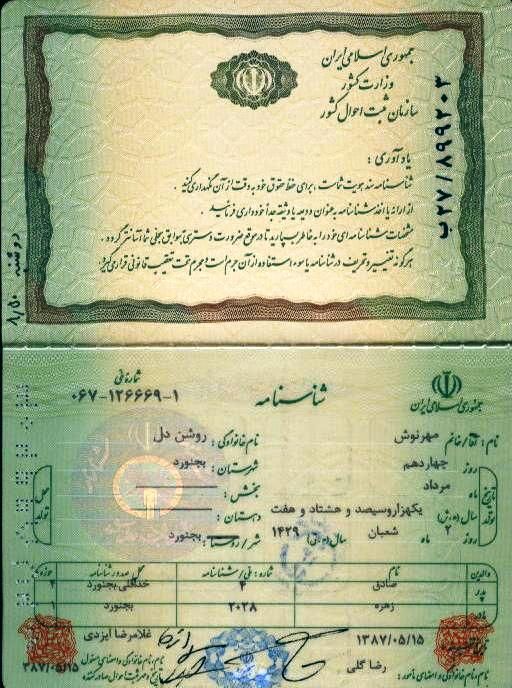 جمهوری اسلامی ایران
وزارت کشور
سازمان ثبت احوال کشور
ب۲۷/۸۹۹۲۰۳
یادآوری :
شناسنامه سند هویت شماست ، برای حفظ حقوق خود به دقت از آن نگهداری کنید .
از ارائه یا اخذ شناسنامه به عنوان ودیعه یا وثیقه جداً خودداری فرمائید .
مشخصات شناسنامه ای خود را به خاطر بسپارید تا در موقع ضرورت دسترسی به سوابق سجلی شما آسانتر گردد .
هرگونه تغییر و تحریف در شناسنامه یا سوء استفاده از آن جرم است و مجرم تحت تعقیب قانونی قرار می گیرد
جمهوری اسلامی ایران
شناسنامه
شماره ملی
۰۶۷-۱۲۶۶۶۹-۱
نام : آقا/خانم مهرنوش
نام خانوادگی : روشن دل
تاریخ تولد
روز چهاردهم
ماه مرداد
سال (ه.ش) یکهزاروسیصد و هشتاد و هفت
روز ۲ ماه شعبان سال (ه.ق) ۱۴۲۹
محل تولد
شهرستان : بجنورد
بخش :
دهستان :
شهر/روستا : بجنورد
والدین نام شماره : ملی/شناسنامه محل صدور شناسنامه حوزه
پدر صادق ۴ بجنورد ۴
مادر زهره ۲۰۲۸ بجنورد ۱
۱۳۸۷/۰۵/۱۵
رضا گلی
نام ، نام خانوادگی و امضای مامور :
غلامرضا ایزدی
۱۳۸۷/۰۵/۱۵